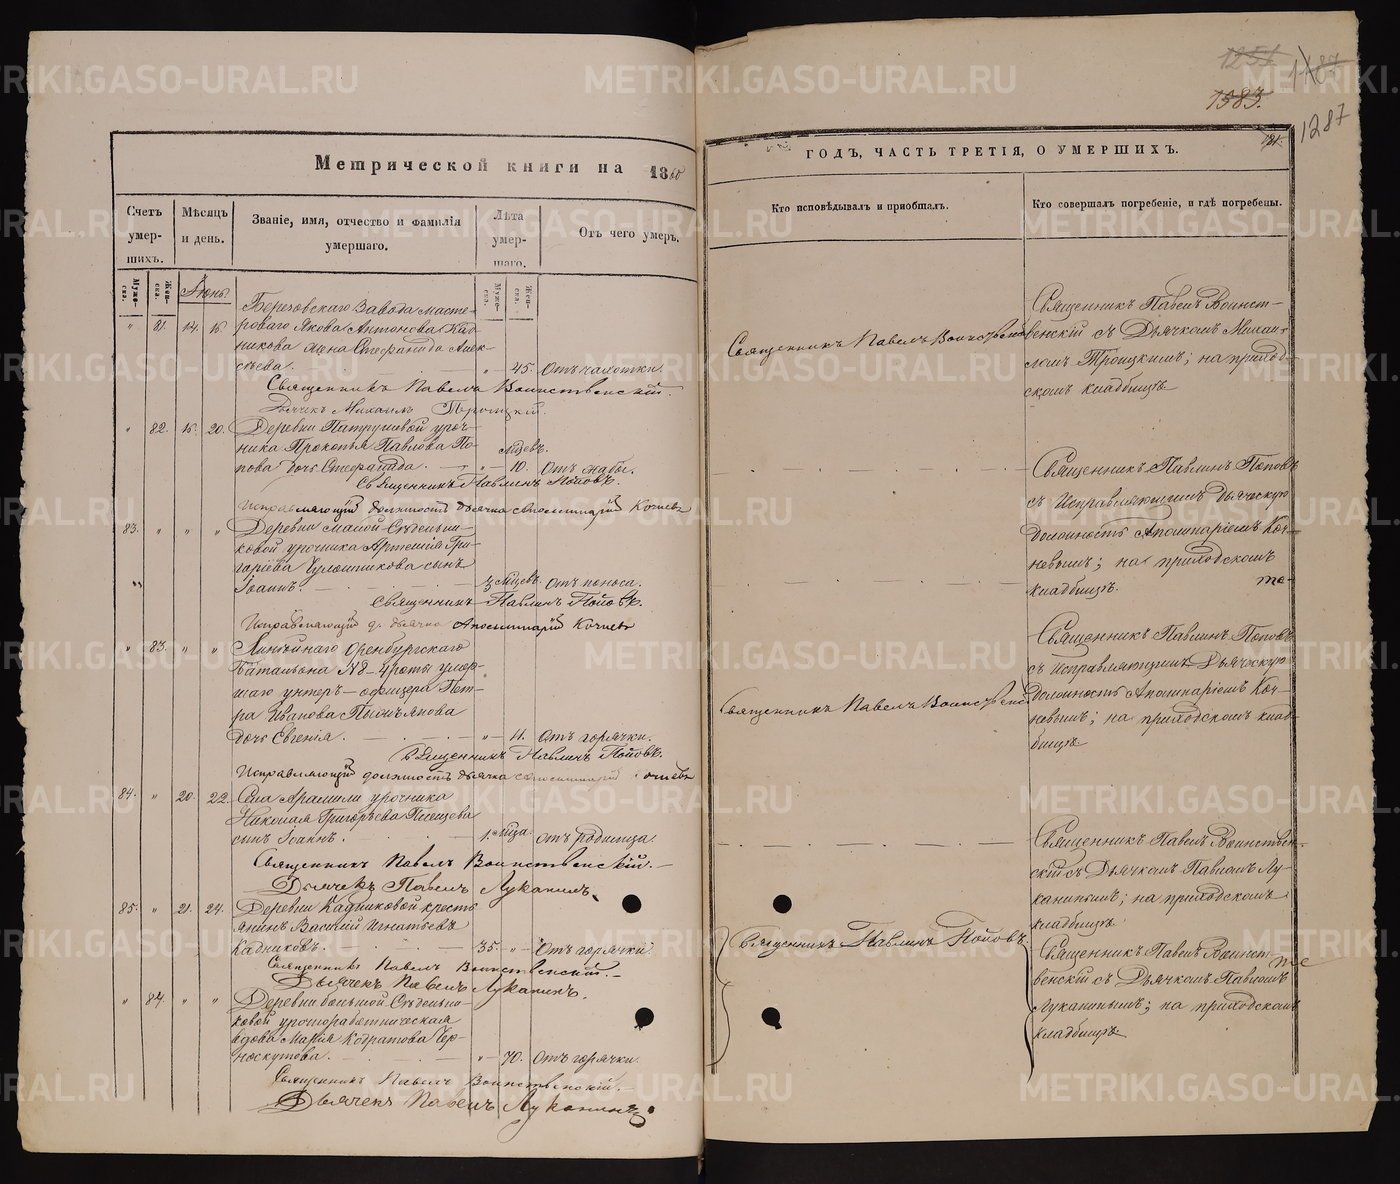 1251
1187
1383.
1287
121.
Метрической книги на 1860
Счетъ умер-шихъ.
Мѣсяцъ и день.
Званіе, имя, отчество и фамилія умершаго.
Лѣта умер-шаго.
Отъ чего умеръ.
Муже-ска.
Жен-ска.
Муже-ска.
Жен-ска.
Іюнь
Березовскаго Завода масте-
" 81. 14. 16. роваго Якова Антонова Кад-
никова жена Стефанида Алек-
сѣева. " 45. Отъ чахотки.
Священникъ Павелъ Воинственскій.
Дьячекъ Михаилъ Троицкій.
" 82. 16. 20. Деревни Патрушевой уроч-
ника Прокопья Павлова По-
мѣсев.
пова дочь Стефанида. " 10. Отъ жабы.
Священникъ Павлинъ Поповъ.
Исправляющій должность дьячка Аполлинарій Кочневъ
83. " " " Деревни Малой Сѣдельни-
ковой урочника Артемія Гри-
горіева Чуломникова сынъ
Іоаннъ. 3/мѣсев. Отъ поноса.
Священникъ Павлинъ Поповъ.
Исправляющій д. дьячка Аполлинарій Кочневъ
" 83. " " Линѣйнаго Оренбургскаго
Баталіона №8 4 роты умер-
шаго унтеръ-офицера Пет-
ра Иванова
дочь Евгенія. " 11. Отъ горячки.
Священникъ Павлинъ Поповъ.
Исправляющій должность дьячка Аполлинарій Кочневъ
84. " 20. 22. Села Арамили урочника
Николая Григорьева
сынъ Іоаннъ. 1. мѣсца. Отъ родимца.
Священникъ Павелъ Воинственскій.
Дьячекъ Павелъ Луканинъ.
85. " 21. 24. Деревни Кадниковой кресть-
янинъ Василій Игнатьевъ
Кадниковъ. 35. " Отъ горячки.
Священникъ Павелъ Воинственскій.
Дьячекъ Павелъ Луканинъ.
" 84. " " Деревни большой Сѣдельни-
ковой урочноработническая
вдова Марія Кодратова Чер-
носкутова. " 70. Отъ горячки.
Священникъ Павелъ Воинственскій.
Дьячекъ Павелъ Луканинъ
ГОДЪ, ЧАСТЬ ТРЕТІЯ, О УМЕРШИХЪ.
Кто исповѣдывалъ и пріобщалъ.
Кто совершалъ погребеніе, и гдѣ погребены.
Священникъ Павелъ Воинственскій
Священникъ Павелъ Воинст-
венскій съ Дьячкомъ Михаи-
ломъ Троицкимъ; на приход-
скомъ кладбищѣ.
Священникъ Павлинъ Поповъ
съ Исправляющимъ дьяческую
должность Аполлинаріемъ Коч-
невымъ; на приходскомъ
кладбищѣ. то-
Священникъ Павелъ Воинственскій
Священникъ Павлинъ Поповъ
съ Исправляющимъ Дьяческую
должность Аполлинаріемъ Коч-
невымъ; на приходскомъ клад-
бищѣ
Священникъ Павелъ Воинствен-
скій съ Дьячкомъ Павломъ Лу-
канинымъ; на приходскомъ
кладбищѣ.
Священникъ Павлинъ Поповъ.
Священникъ Павелъ Воинст-
то
венскій съ Дьячкомъ Павломъ
Луканинымъ; на приходскомъ
кладбищѣ.
METRIKI.GASO-URAL.RU